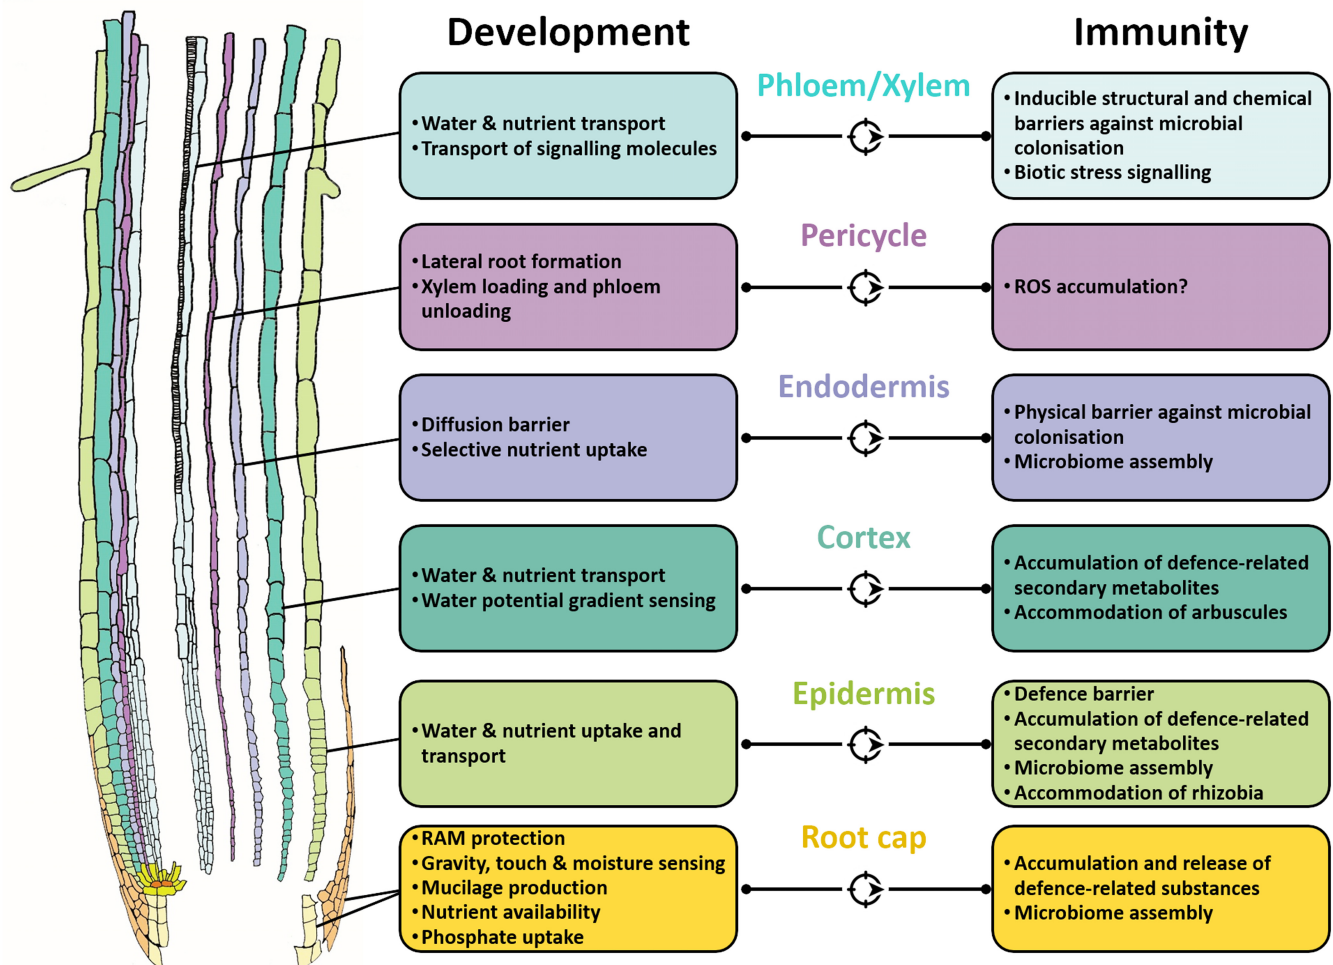 Development
Immunity
Phloem/Xylem
• Water & nutrient transport
• Transport of signalling molecules
• Inducible structural and chemical
barriers against microbial
colonisation
• Biotic stress signalling
Pericycle
• Lateral root formation
• Xylem loading and phloem
unloading
• ROS accumulation?
Endodermis
• Diffusion barrier
• Selective nutrient uptake
• Physical barrier against microbial
colonisation
• Microbiome assembly
Cortex
• Water & nutrient transport
• Water potential gradient sensing
• Accumulation of defence-related
secondary metabolites
• Accommodation of arbuscules
Epidermis
• Water & nutrient uptake and
transport
• Defence barrier
• Accumulation of defence-related
secondary metabolites
• Microbiome assembly
• Accommodation of rhizobia
Root cap
• RAM protection
• Gravity, touch & moisture sensing
• Mucilage production
• Nutrient availability
• Phosphate uptake
• Accumulation and release of
defence-related substances
• Microbiome assembly